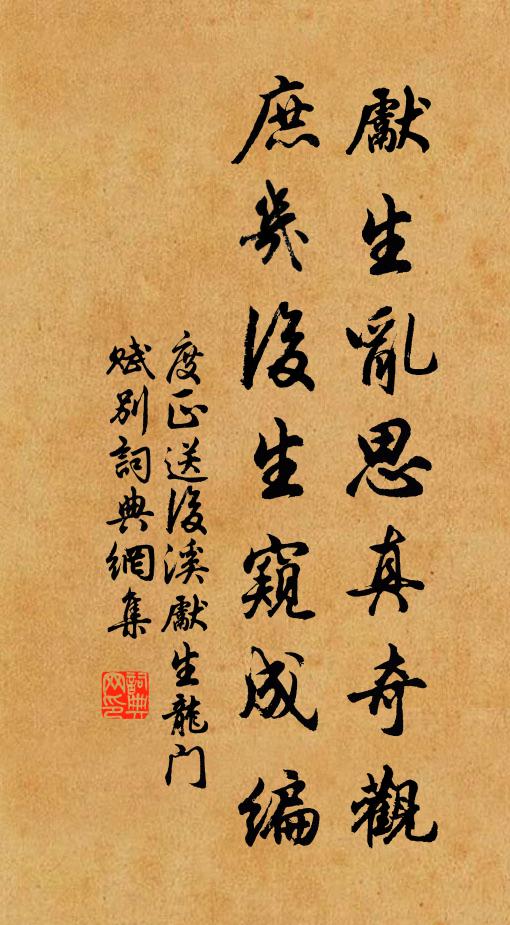 獻生亂思真奇觀
庶幾後生窺成編
度正送後溪獻生龍门
賦別詞典網集
詞典网印